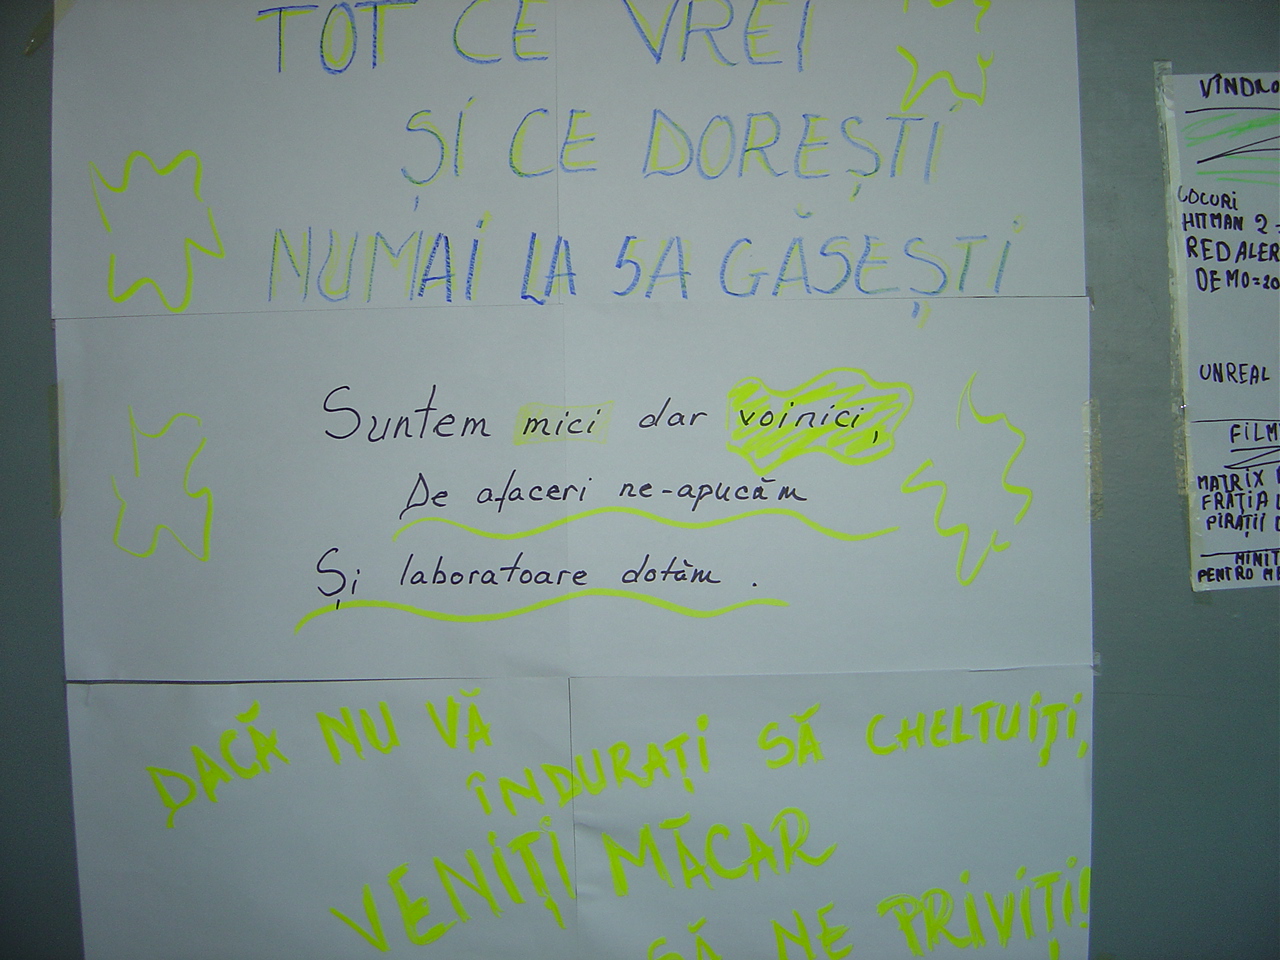 TOT CE VREI
ȘI CE DOREȘTI
NUMAI LA 5A GĂSEȘTI
Suntem mici dar voinici,
De afaceri ne-apucăm
Și laboratoare dotăm .
DACĂ NU VĂ
ÎNDURAȚI SĂ CHELTUIȚI,
VENIȚI MĂCAR
SĂ NE PRIVIȚI!
HITMAN 2
UNREAL
MATRIX
PIRAȚII
PENTRU